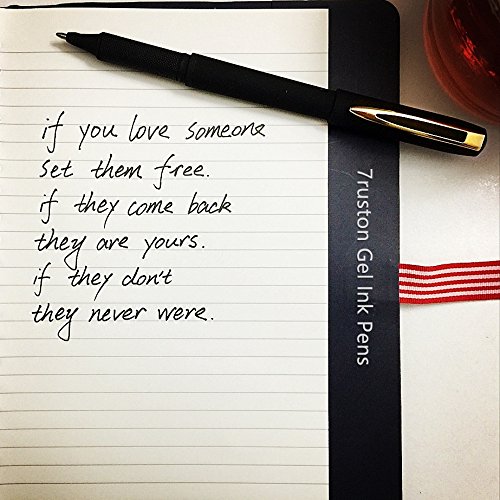 if you love someone
set them free.
if they come back
they are yours.
if they don't
they never were.
7ruston Gel Ink Pens